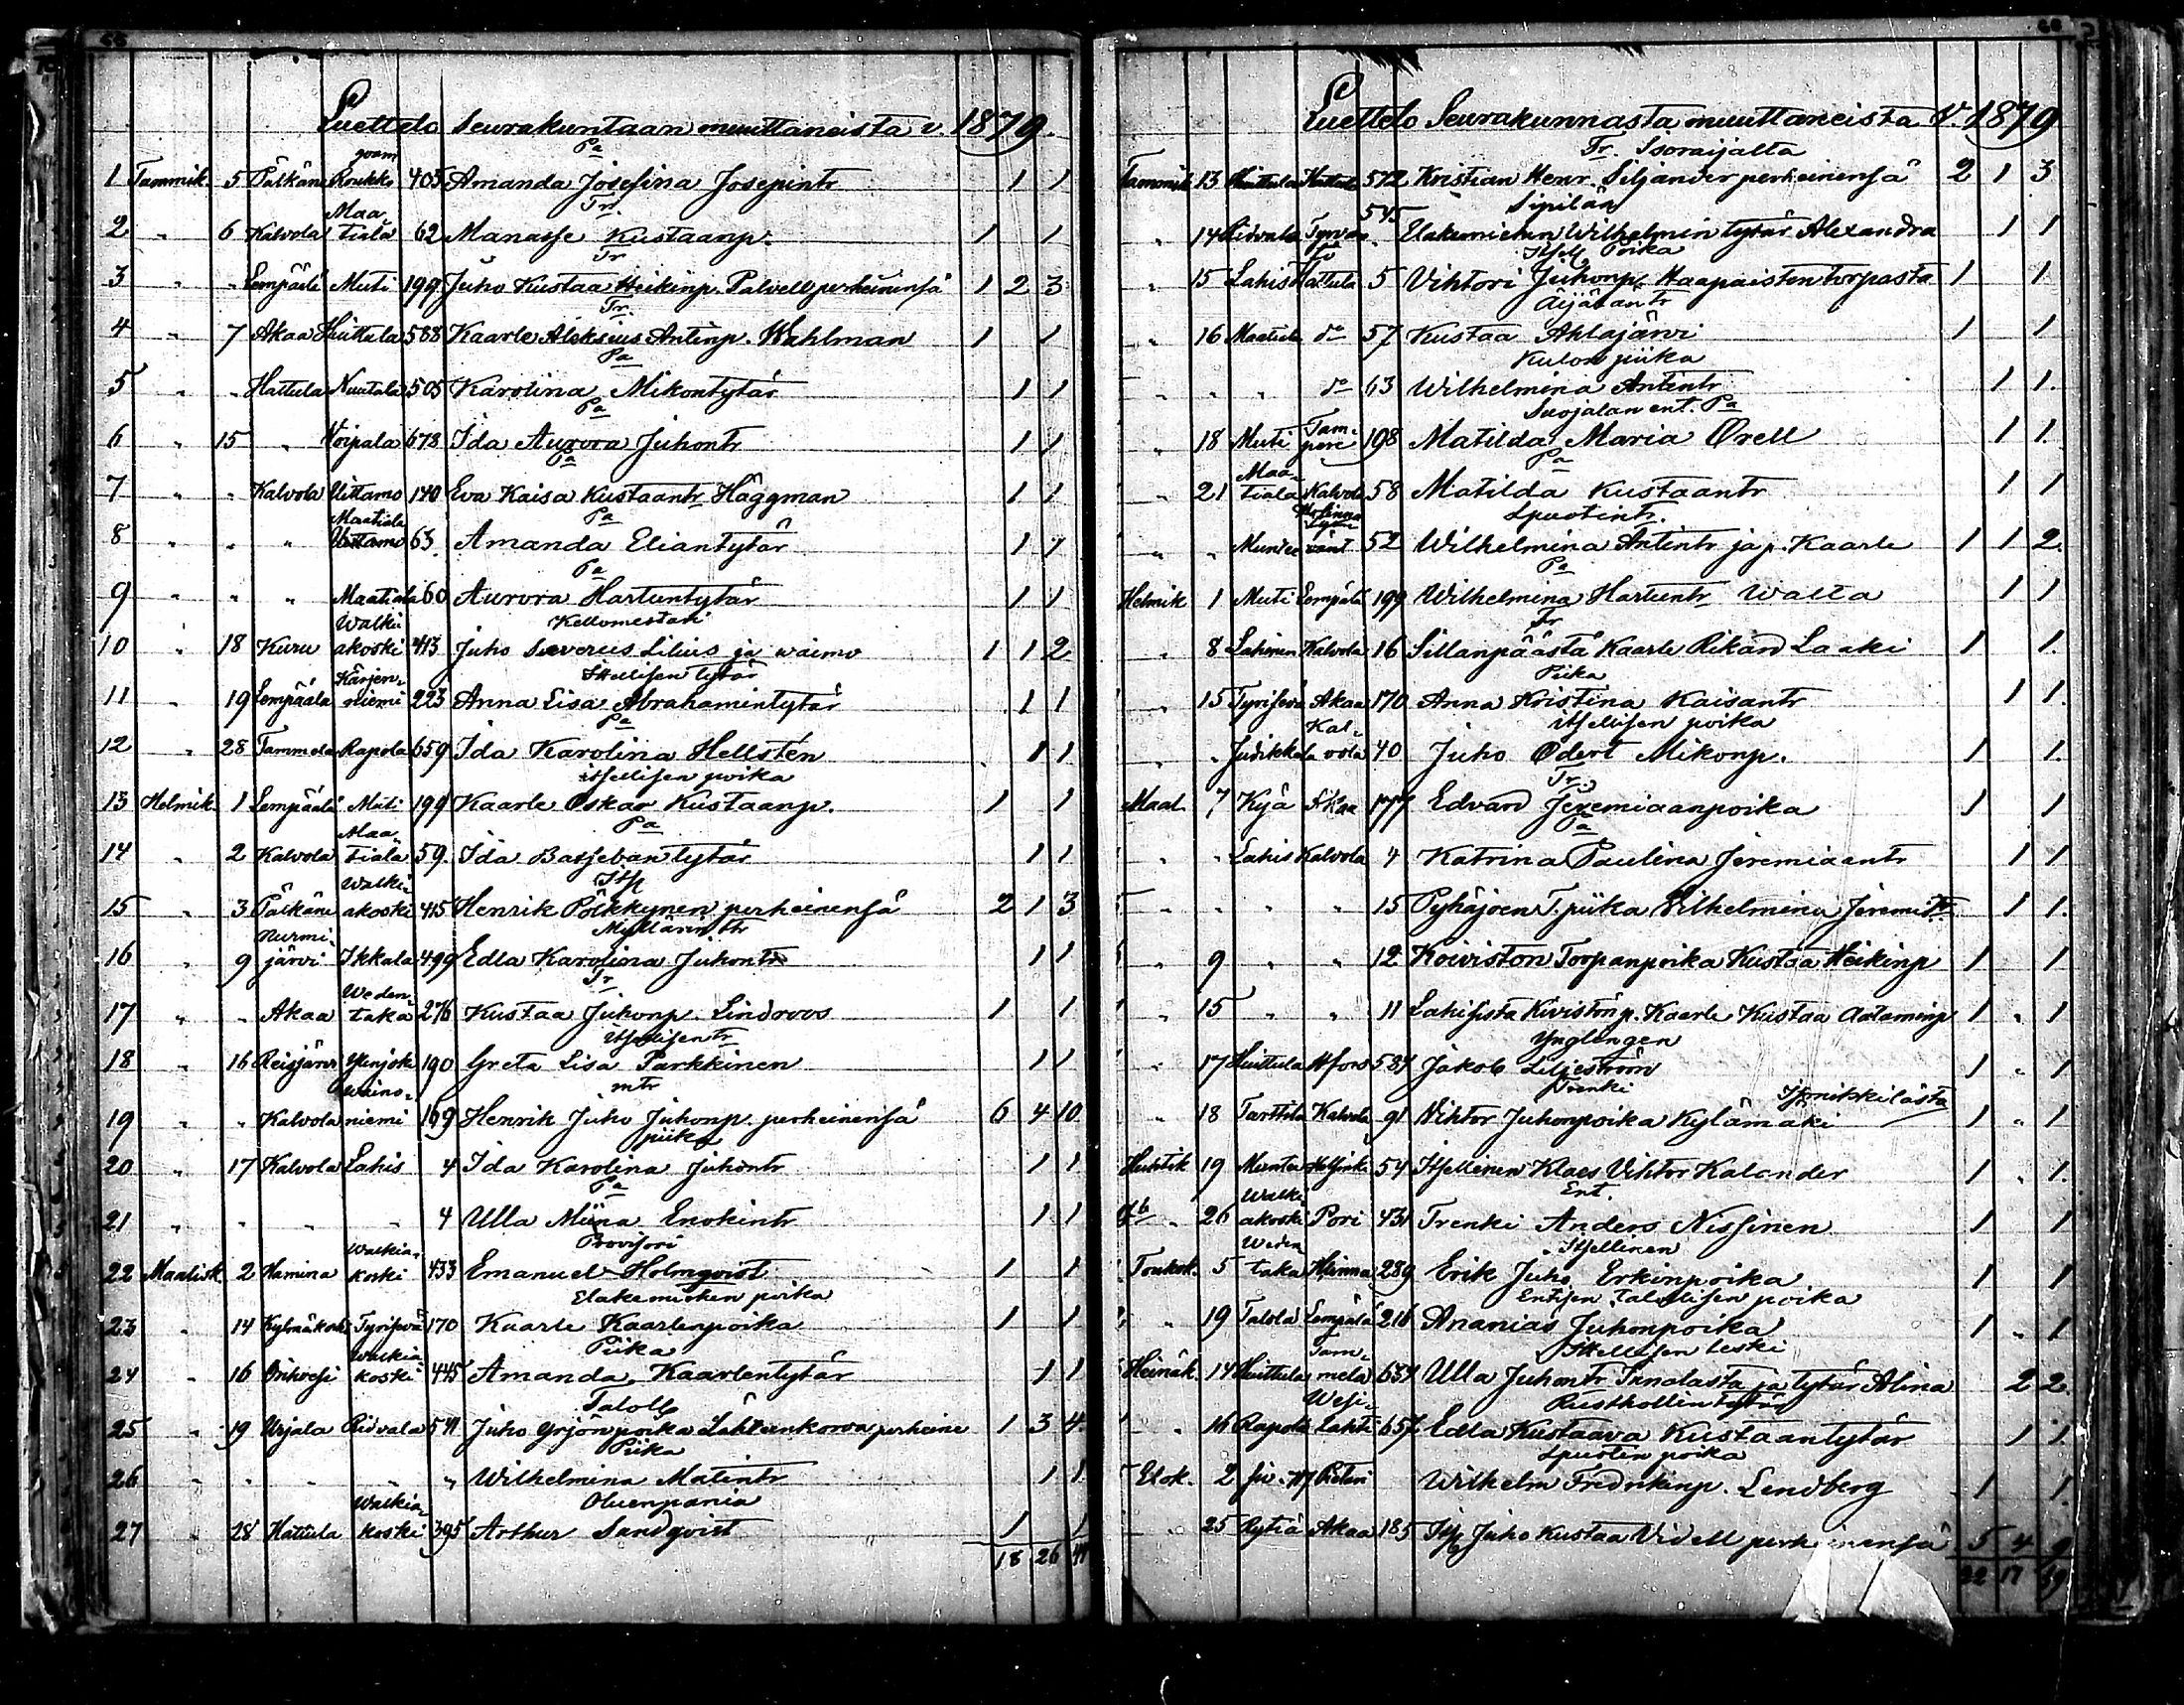 Luettelo Seurakuntaan muuttaneista v. 1879.
Pa
1 Tammik. 5 Pälkäne Roukko 405 Amanda Josefina Josepintr 1 1
Tr.
2 " 6 Kalvola Maatiala 62 Manasse Kustaanp. 1 1
Tr
3 " " Lempäälä Muti 199 Juho Kustaa Heikinp. Palvell perheinensä 1 2 3
Tr.
4 " 7 Akaa Huittula 588 Kaarle Aleksius Antinp. Wahlman 1 1
Pa
5 " " Hattula Nuutala 505 Karolina Mikontytär 1 1
Pa
6 " 15 " Voipala 678 Ida Aurora Juhontr 1 1
Pa
7 " " Kalvola Uittamo 140 Eva Kaisa Kustaantr Häggman 1 1
Pa
8 " " " Maatiala 63 Amanda Eliantytär 1 1
Pa
9 " " " Maatiala 60 Aurora Hartuntytär 1 1
Kellomestari
10 " 18 Kuru Walkiakoski 413 Juho Severus Lilius ja waimo 1 1 2
Itsellisen tytär
11 " 19 Lempäälä Kärjenniemi 223 Anna Lisa Abrahamintytär 1 1
Pa
12 " 28 Tammela Rapola 659 Ida Karolina Hellstén 1 1
itsellisen poika
13 Helmik. 1 Lempäälä Muti 199 Kaarle Oskar Kustaanp. 1 1
Pa
14 " 2 Kalvola Maatiala 59. Ida Basjeban tytär 1 1
Its
15 " 3 Pälkäne Walkiakoski 415 Henrik Pölkkynen perheinensä 2 1 3
Myllärin tr
16 " 9 Nurmijärvi Ikkala 499 Edla Karolina Juhontr 1 1
Tr
17 " " Akaa Wedentaka 276 Kustaa Juhonp. Lindroos 1 1
itsellisen tr
18 " 16 Reisjärvi Ylenjoki 190 Greta Lisa Parkkinen 1 1
mtr
19 " " Kalvola Wainoniemi 169 Henrik Juho Juhonp. perheinensä 6 4 10
piika
20 " 17 Kalvola Lahis 4 Ida Karolina Juhontr 1 1
Pa
21 " " " " 4 Ulla Miina Enokintr 1 1
Provisori
22 Maalisk. 2 Hamina Walkiakoski 433 Emanuel Holmqvist 1 1
Elakemiehen poika
23 " 14 Kylmäkoski Tyrisevä 170 Kaarle Kaarlenpoika 1 1
Piika
24 " 16 Orihvesi Walkiakoski 445 Amanda Kaarlentytär 1 1
Taloll
25 " 19 Urjala Ridvala 541 Juho Yrjönpoika Lähteenkorva perheine 1 3 4
Piika
26 " " " " " Wilhelmina Matintr 1 1
Oluenpania
27 " 28 Hattula Walkiakoski 395 Arthur Sandqvist 1 1
18 26 44
Luettelo Seurakunnasta muuttaneista V. 1879
Tr. Isoraijalta
Tammik 13 Huittula Hattula 572 Kristian Henr. Siljander perheinensä 2 1 3
Sipilän
" 14 Ridvala 545 Elakemiehen Wilhelmin tytär Alexandra 1 1
Itsell Poika
" 15 Lahis Hattula 5 Vihtori Juhonp. Haapaisten torpasta 1 1
Äijälän tr
" 16 Maatiala do 57 Kustaa Ahlajärvi 1 1
Kulon piika
" " " do 63 Wilhelmina Antintr 1 1
Suojalan ent. Pa
" 18 Muti Tampere 198 Matilda Maria Orell 1 1
Pa
" 21 Maatiala Kalvola 58 Matilda Kustaantr 1 1
Spuotintr.
" " 52 Wilhelmina Antintr ja p. Kaarle 1 1 2
Pa
Helmik 1 Muti Lempälä 199 Wilhelmina Hartuntr Walta 1 1
Tr
" 8 Lahinen Kalvola 16 Sillanpäästä Kaarle Rikard Laaki 1 1
Piika
" 15 Tyrisevä Akaa 170 Anna Kristina Kaisantr 1 1
itsellisen poika
" " Judikkala Kalvola 40 Juho Edert Mikonp. 1 1
Tr.
Maal. 7 Kyiä Akaa 177 Edvard Jeremiaanpoika 1 1
Pa
" " Lahis Kalvola 4 Katrina Paulina Jeremiaantr 1 1
" " " " 15 Pyhäjoen T. piika Wilhelmina Jeremiatr 1 1
" 9 " " 12 Koiviston Torpanpoika Kustaa Heikinp 1 1
" 15 " " 11 Lahisista Kivistön p. Kaarle Kustaa Aataminp 1 " 1
Ynglingen
" 17 Huittula Hfors 584 Jakob Liljeström 1 " 1
Trenki Isonikkilästä
" 18 Tarttila Kalvola 91 Viktor Juhonpoika Kylämäki 1 " 1
Huhtik 19 Helsinki 54 Itsellinen Klaes Vihtor Kalander 1 " 1
Ent.
26 Walkiakoski Pori 431 Trenki Anders Nissinen 1 1
Itsellinen
Toukok. 5 Wedentaka Hlinna 289 Erik Juho Erkinpoika 1 1
Entisen Talollisen poika
" 19 Talola Lempälä 216 Ananias Juhonpoika 1 " 1
Itsellisen leski
Heinäk. 14 Huittula Tammela 657 Ulla Juhontr ja tytär Alina 2 2
Rusthollin tytär
" 16 Rapola Wesilahti 657 Edla Kustaava Kustaantytär 1 1
Spuoten poika
Elok. 2 Wilhelm Fredrikinp. Lindberg 1 1
25 Rytiä Akaa 185 Its Juho Kustaa Videll perheinensä 5 4 9
22 17 39